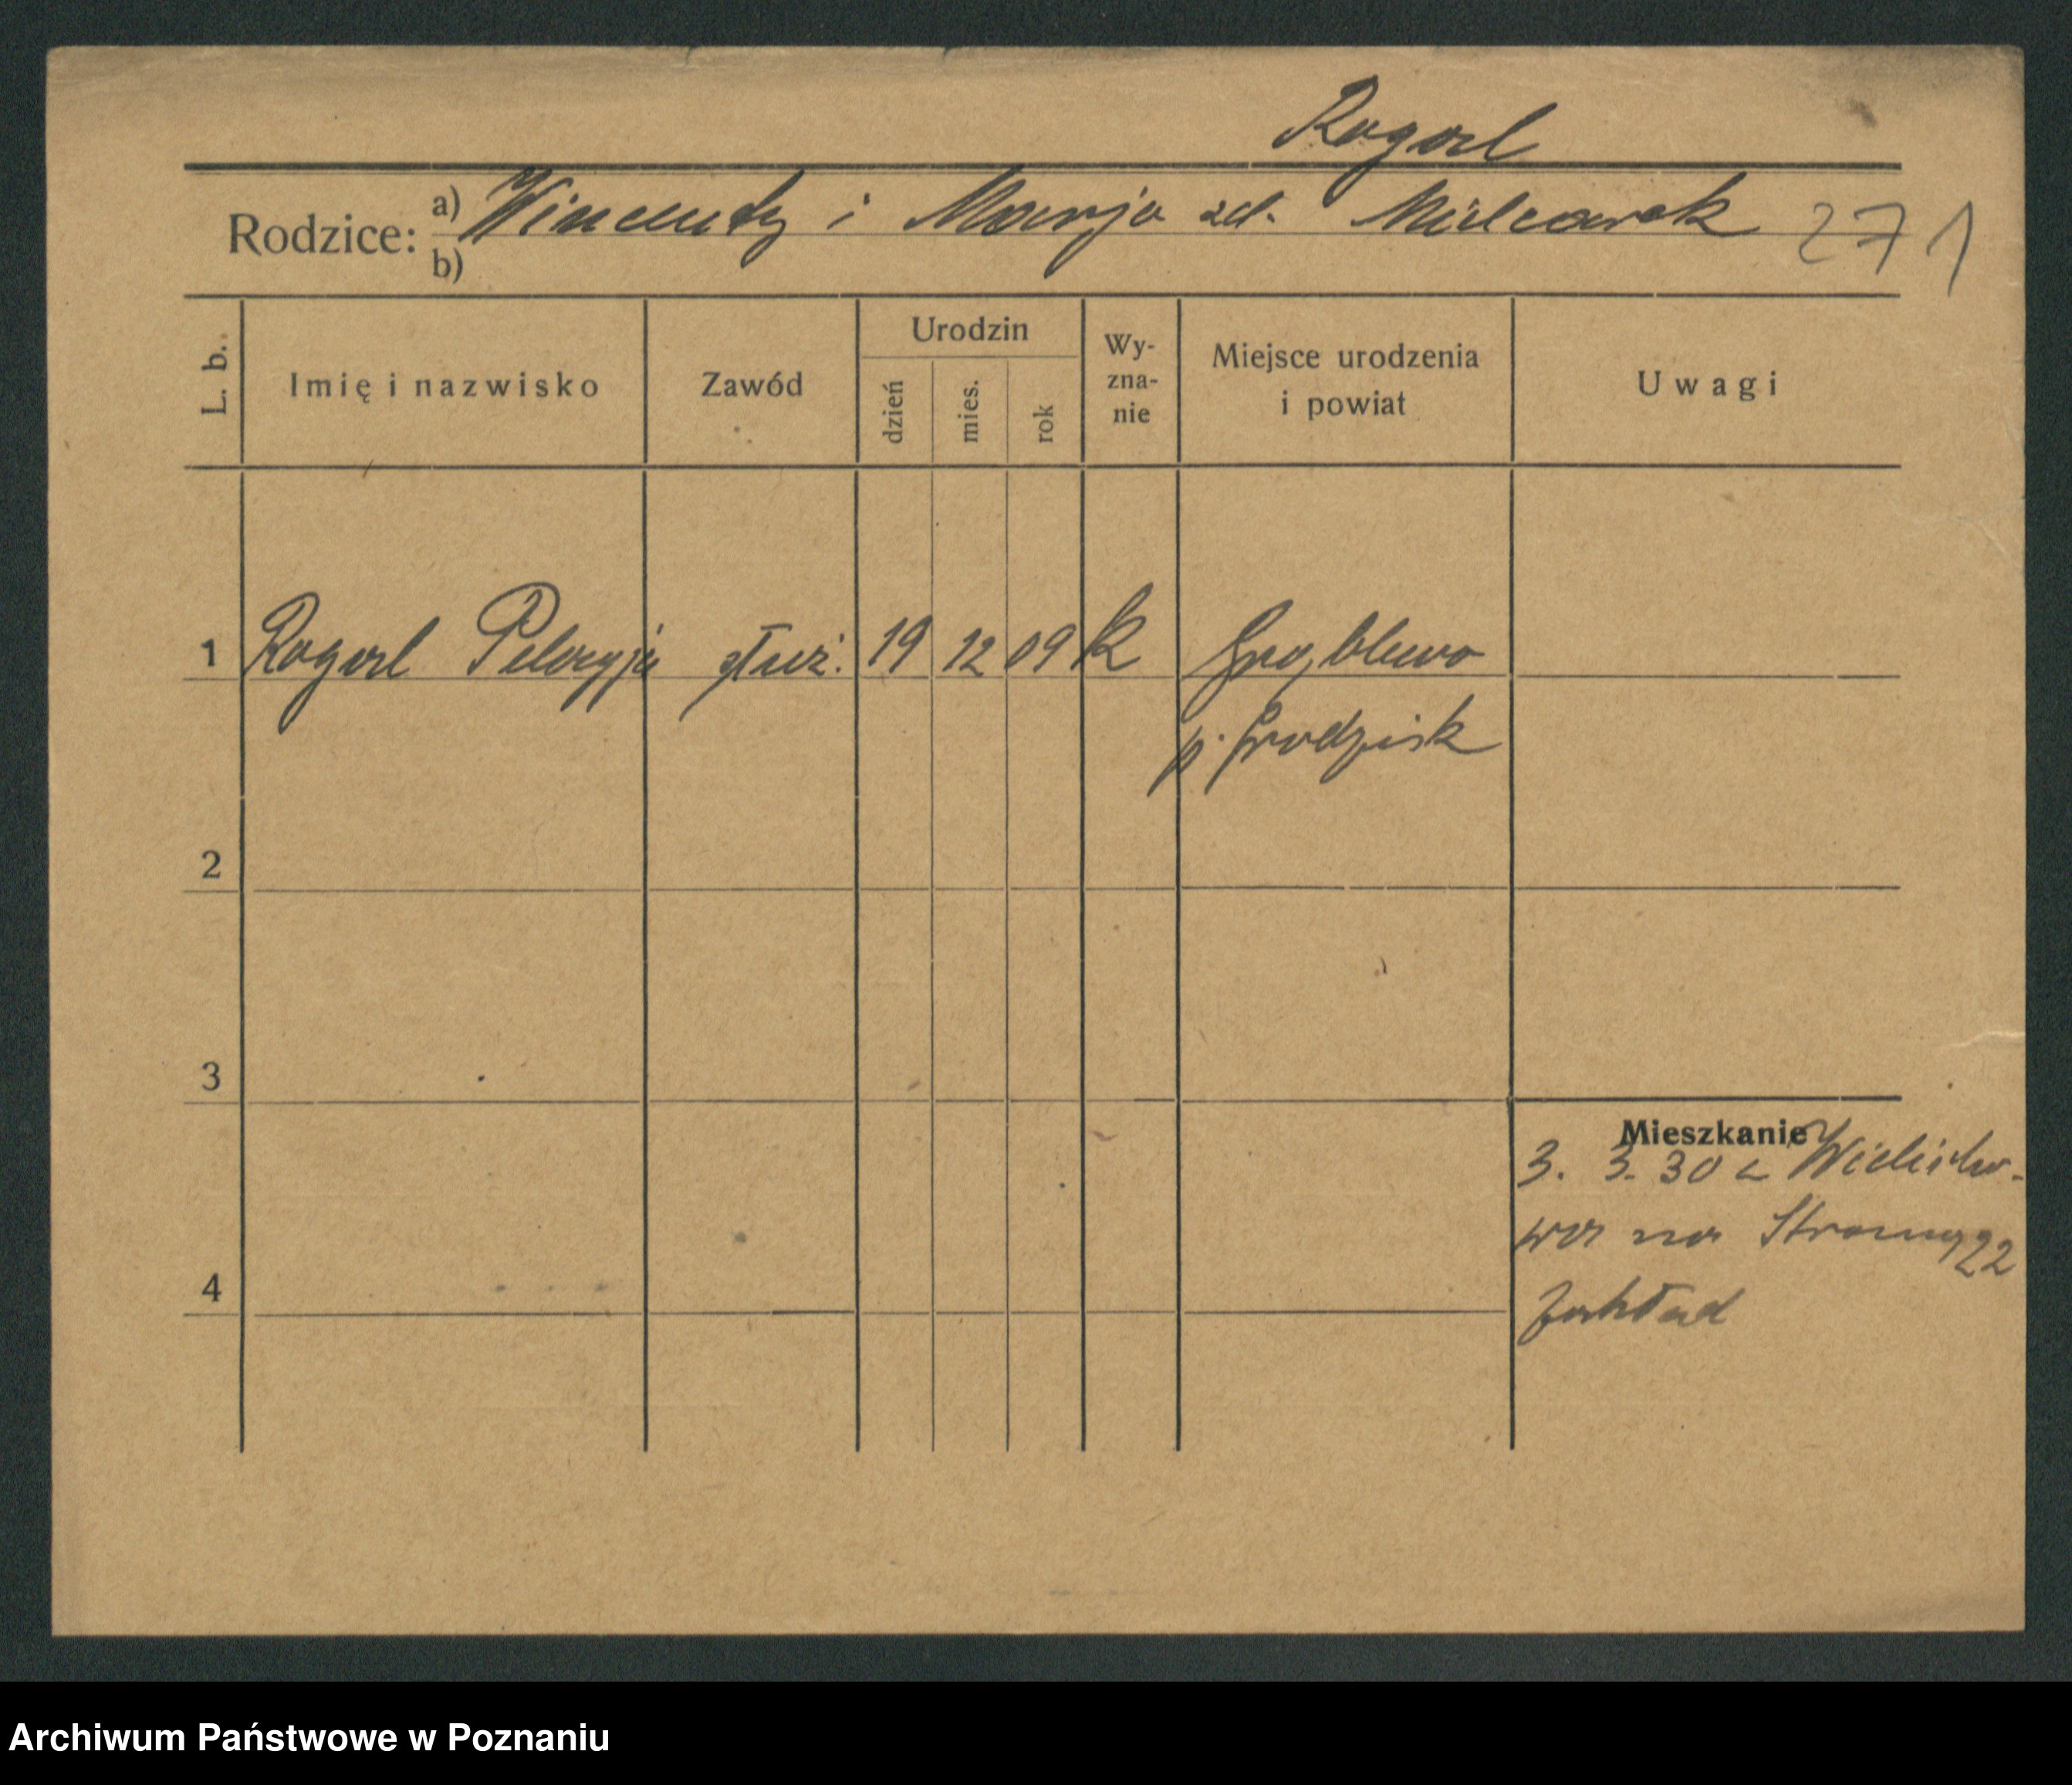 Rogol
Rodzice: a) Wincenty i Marja zd. Mielcarek 271
b)
L. b. Imię i nazwisko Zawód Urodzin dzień mies. rok Wy-zna-nie Miejsce urodzenia i powiat Uwagi
1 Rogol Pelagja służ. 19 12 09 k Grąblewo
p. Grodzisk
2
3
Mieszkanie
3. 3. 30 z Wielicho-
wa na Stromy 22
4 Zakład
Archiwum Państwowe w Poznaniu